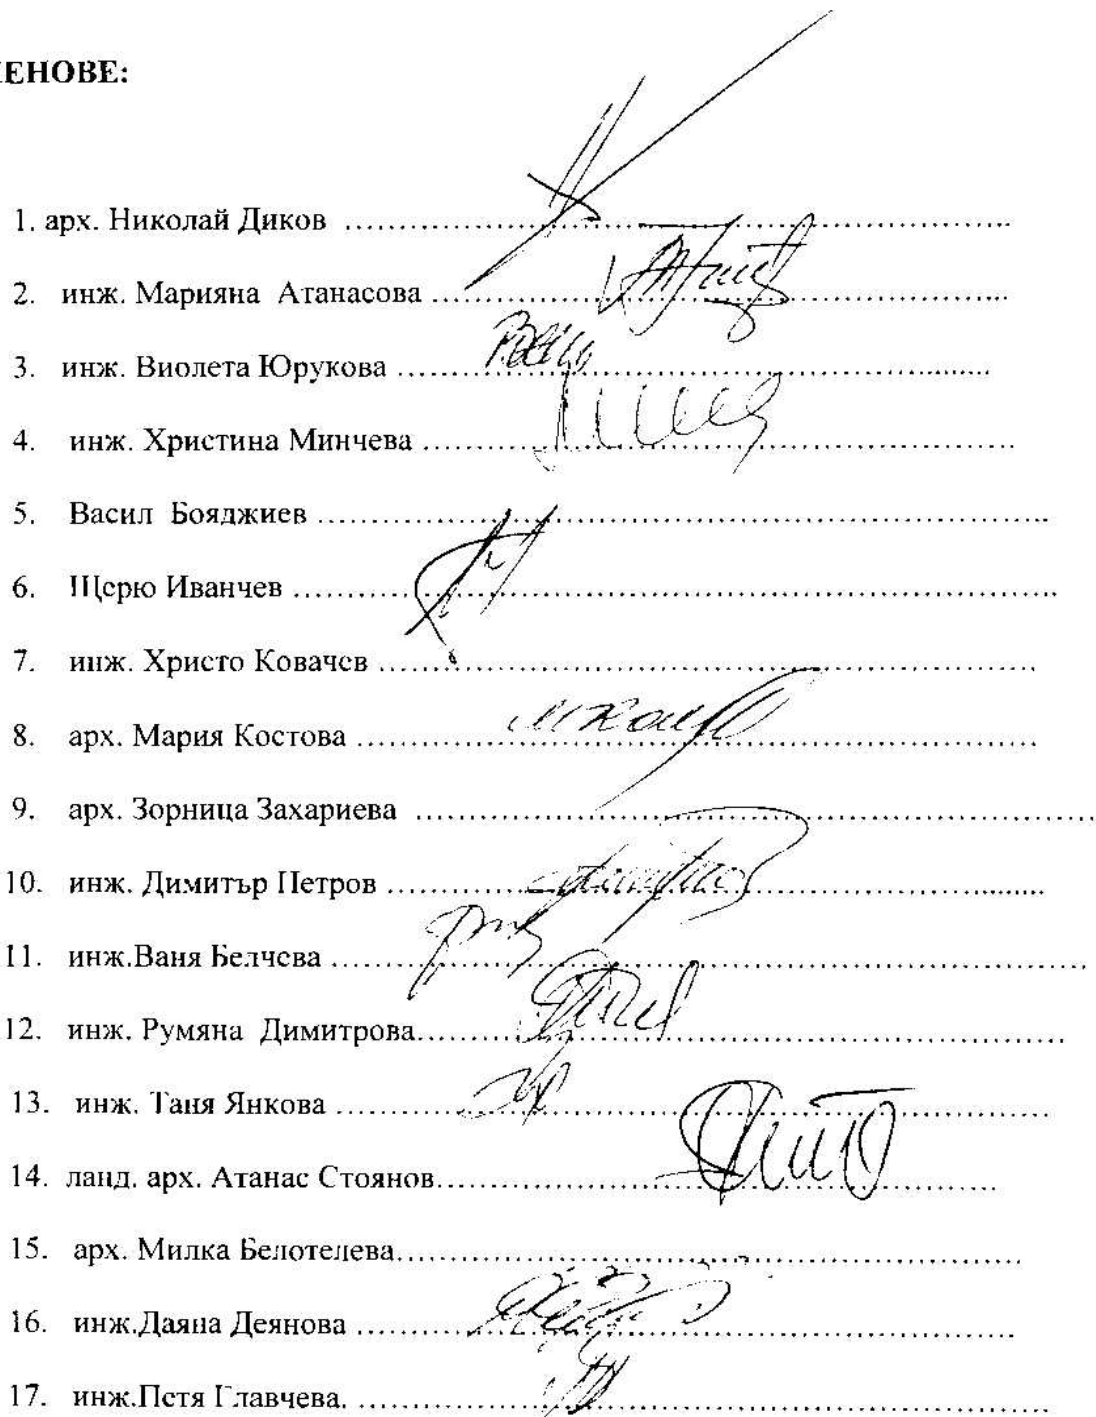 ЧЛЕНОВЕ:
1. арх. Николай Диков ..........
2. инж. Марияна Атанасова ..........
3. инж. Виолета Юрукова ..........
4. инж. Христина Минчева ..........
5. Васил Бояджиев ..........
6. Щерю Иванчев ..........
7. инж. Христо Ковачев ..........
8. арх. Мария Костова ..........
9. арх. Зорница Захариева ..........
10. инж. Димитър Петров ..........
11. инж.Ваня Белчева ..........
12. инж. Румяна Димитрова..........
13. инж. Таня Янкова ..........
14. ланд. арх. Атанас Стоянов..........
15. арх. Милка Белотелева..........
16. инж.Даяна Деянова ..........
17. инж.Петя Главчева. ..........